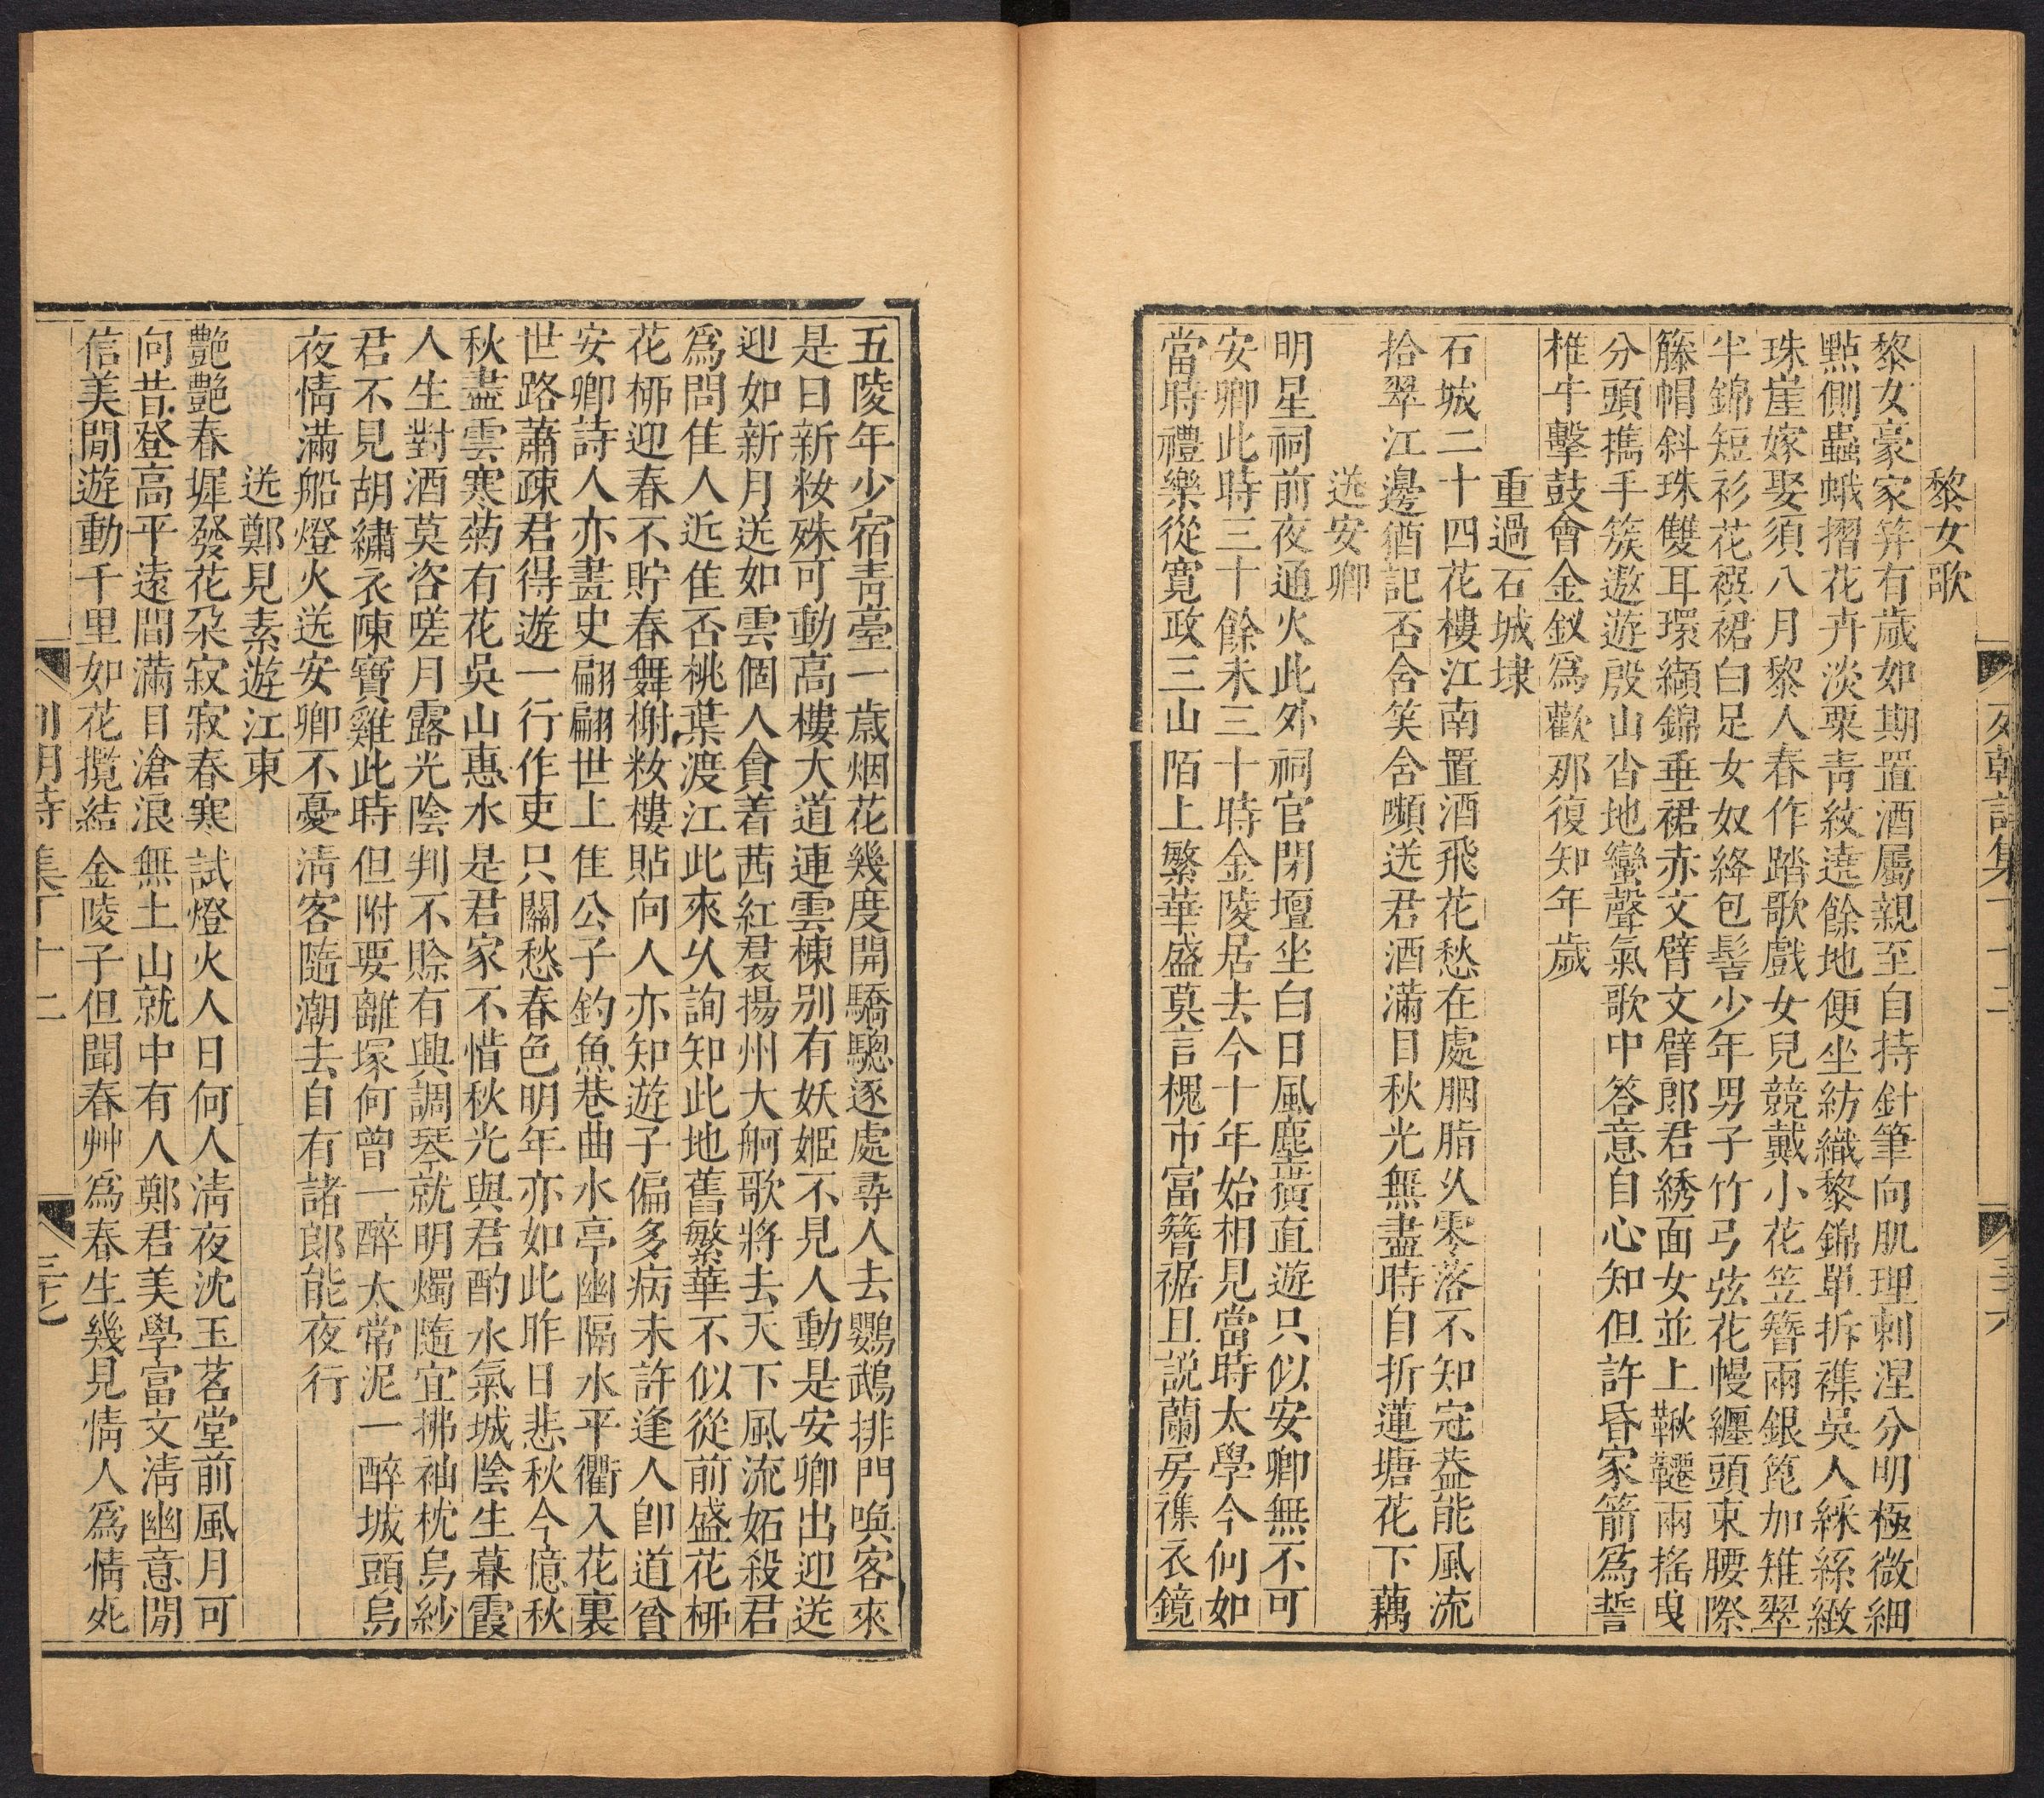 黎女歌
黎女豪家笄有歲如期置酒屬親至自持針筆向肌理刺涅分明極微細
點側蟲蛾摺花卉淡栗青紋遶餘地便坐紡織黎錦單拆襍吳人綵絲緻
珠崖嫁娶須八月黎人春作踏歌戲女兒競戴小花笠簪兩銀篦加雉翠
半錦短衫花襈裙白足女奴絳包髻少年男子竹弓弦花幔纏頭束腰際
籐帽斜珠雙耳環纈錦垂裙赤文臂文臂郎君綉面女並上鞦韆兩搖曳
分頭攜手簇遨遊殷山沓地蠻聲氣歌中答意自心知但許昏家箭爲誓
椎牛擊鼓會金釵爲歡那復知年歲
重過石城埭
石城二十四花樓江南置酒飛花愁在處胭脂久零落不知冠葢能風流
拾翠江邊猶記否舍笑舍嚬送君酒滿目秋光無盡時自折蓮塘花下藕
送安卿
明星祠前夜通火此外祠官閉壇坐白日風塵橫直遊只似安卿無不可
安卿此時三十餘未三十時金陵居去今十年始相見當時太學今何如
當時禮樂從寬政三山陌上繁華盛莫言槐市富簪裾且説蘭房蕉衣鏡
五陵年少宿青臺一歲烟花幾度開驕驄逐處尋人去鸚鵡排門喚客來
是日新妝殊可動高樓大道連雲棟别有妖姬不見人動是安卿出迎送
迎如新月送如雲個人貪着茜紅裙揚州大舸歌將去天下風流妬殺君
爲問佳人近隹否桃葉渡江此來久詢知此地舊繁華不似從前盛花栁
花栁迎春不貯春舞榭妝樓貼向人亦知遊子偏多病未許逢人卽道貧
安卿詩人亦畫史翩翩世上佳公子釣魚巷曲水亭幽隔水平衢入花裏
世路蕭疎君得遊一行作吏只關愁春色明年亦如此昨日悲秋今憶秋
秋盡雲寒菊有花吳山惠水是君家不惜秋光與君酌水氣城陰生暮霞
人生對酒莫咨嗟月露光陰判不賒有興調琴就明燭隨宜拂袖枕烏紗
君不見胡繡衣陳寶雞此時但附要離塚何曾一醉太常泥一醉城頭烏
夜情滿船燈火送安卿不憂淸客隨潮去自有諸郎能夜行
送鄭見素遊江東
艷艷春墀發花朶寂寂春寒試燈火人日何人淸夜沈玉茗堂前風月可
向昔登高平遠間滿目滄浪無土山就中有人鄭君美學富文淸幽意閒
信美閒遊動千里如花攬結金陵子但聞春艸爲春生幾見情人爲情死
列朝詩集丁十二